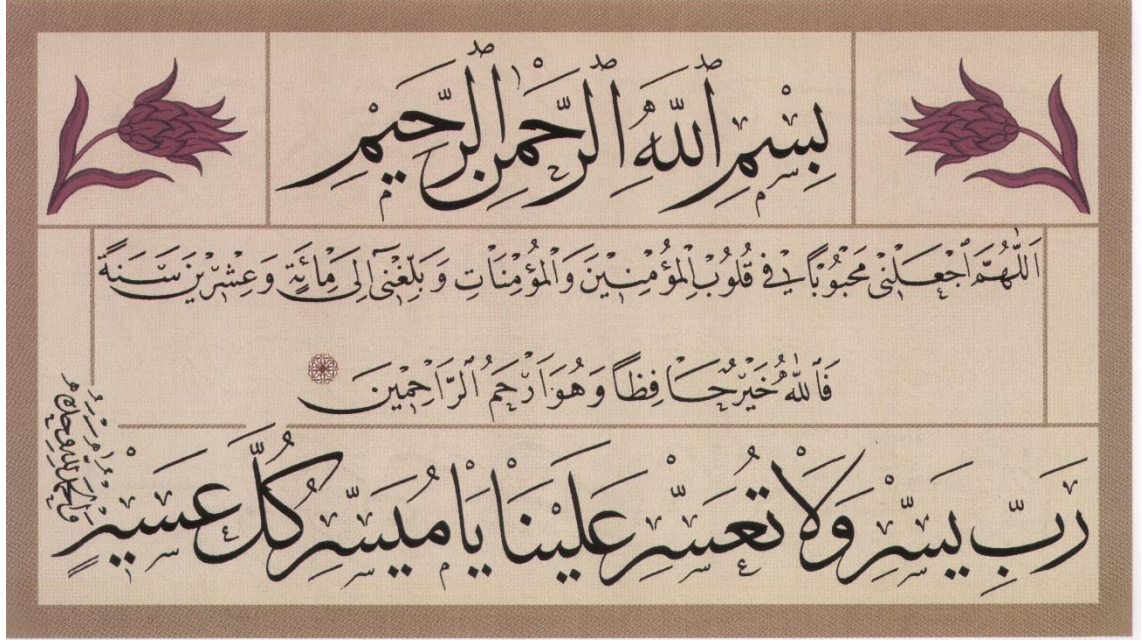 بِسْمِ ٱللّٰهِ ٱلرَّحْمٰنِ ٱلرَّحِيمِ
اَللّٰهُمَّ ٱجْعَلْنِى مَحْبُوْبًا فِي قُلُوْبِ الْمُؤْمِنِيْنَ وَالْمُؤْمِنَاتِ وَبَلِّغْنِى اِلَى مِائَةٍ وَعِشْرِيْنَ سَنَةً
فَٱللّٰهُ خَيْرٌ حَافِظًا وَهُوَ اَرْحَمُ ٱلرَّاحِمِيْنَ
رَبِّ يَسِّرْ وَلَا تُعَسِّرْ عَلَيْنَا يَا مُيَسِّرَ كُلِّ عَسِيْرٍ